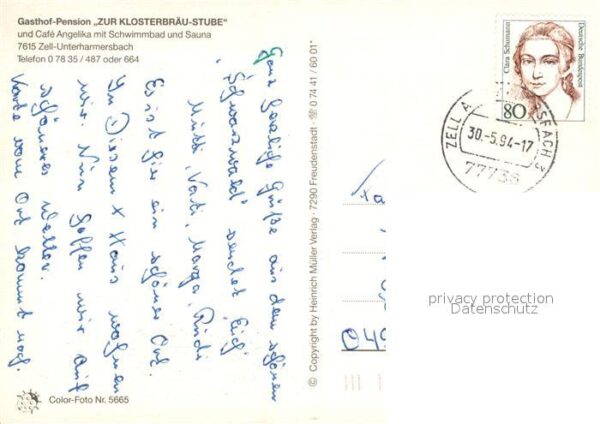 Gasthof-Pension „ZUR KLOSTERBRÄU-STUBE"
und Café Angelika mit Schwimmbad und Sauna
7615 Zell-Unterharmersbach
Telefon 0 78 35 / 487 oder 664
Ganz herzliche Grüße aus dem schönen
„Schwarzwald" sendet Euch
Mutti, Vati, Marga, Rudi
Es ist hier ein schöner Ort.
In Haus wohnen
wir. Nun hoffen wir auf
schöneres Wetter.
Karte vom Ort kommt noch.
Color-Foto Nr. 5665
© Copyright by Heinrich Müller Verlag · 7290 Freudenstadt · ☏ 0 74 41 / 60 01*
Clara Schumann
Deutsche Bundespost
80
ZELL A
SBACH 3
30.-5.94-17
77736
049
privacy protection
Datenschutz